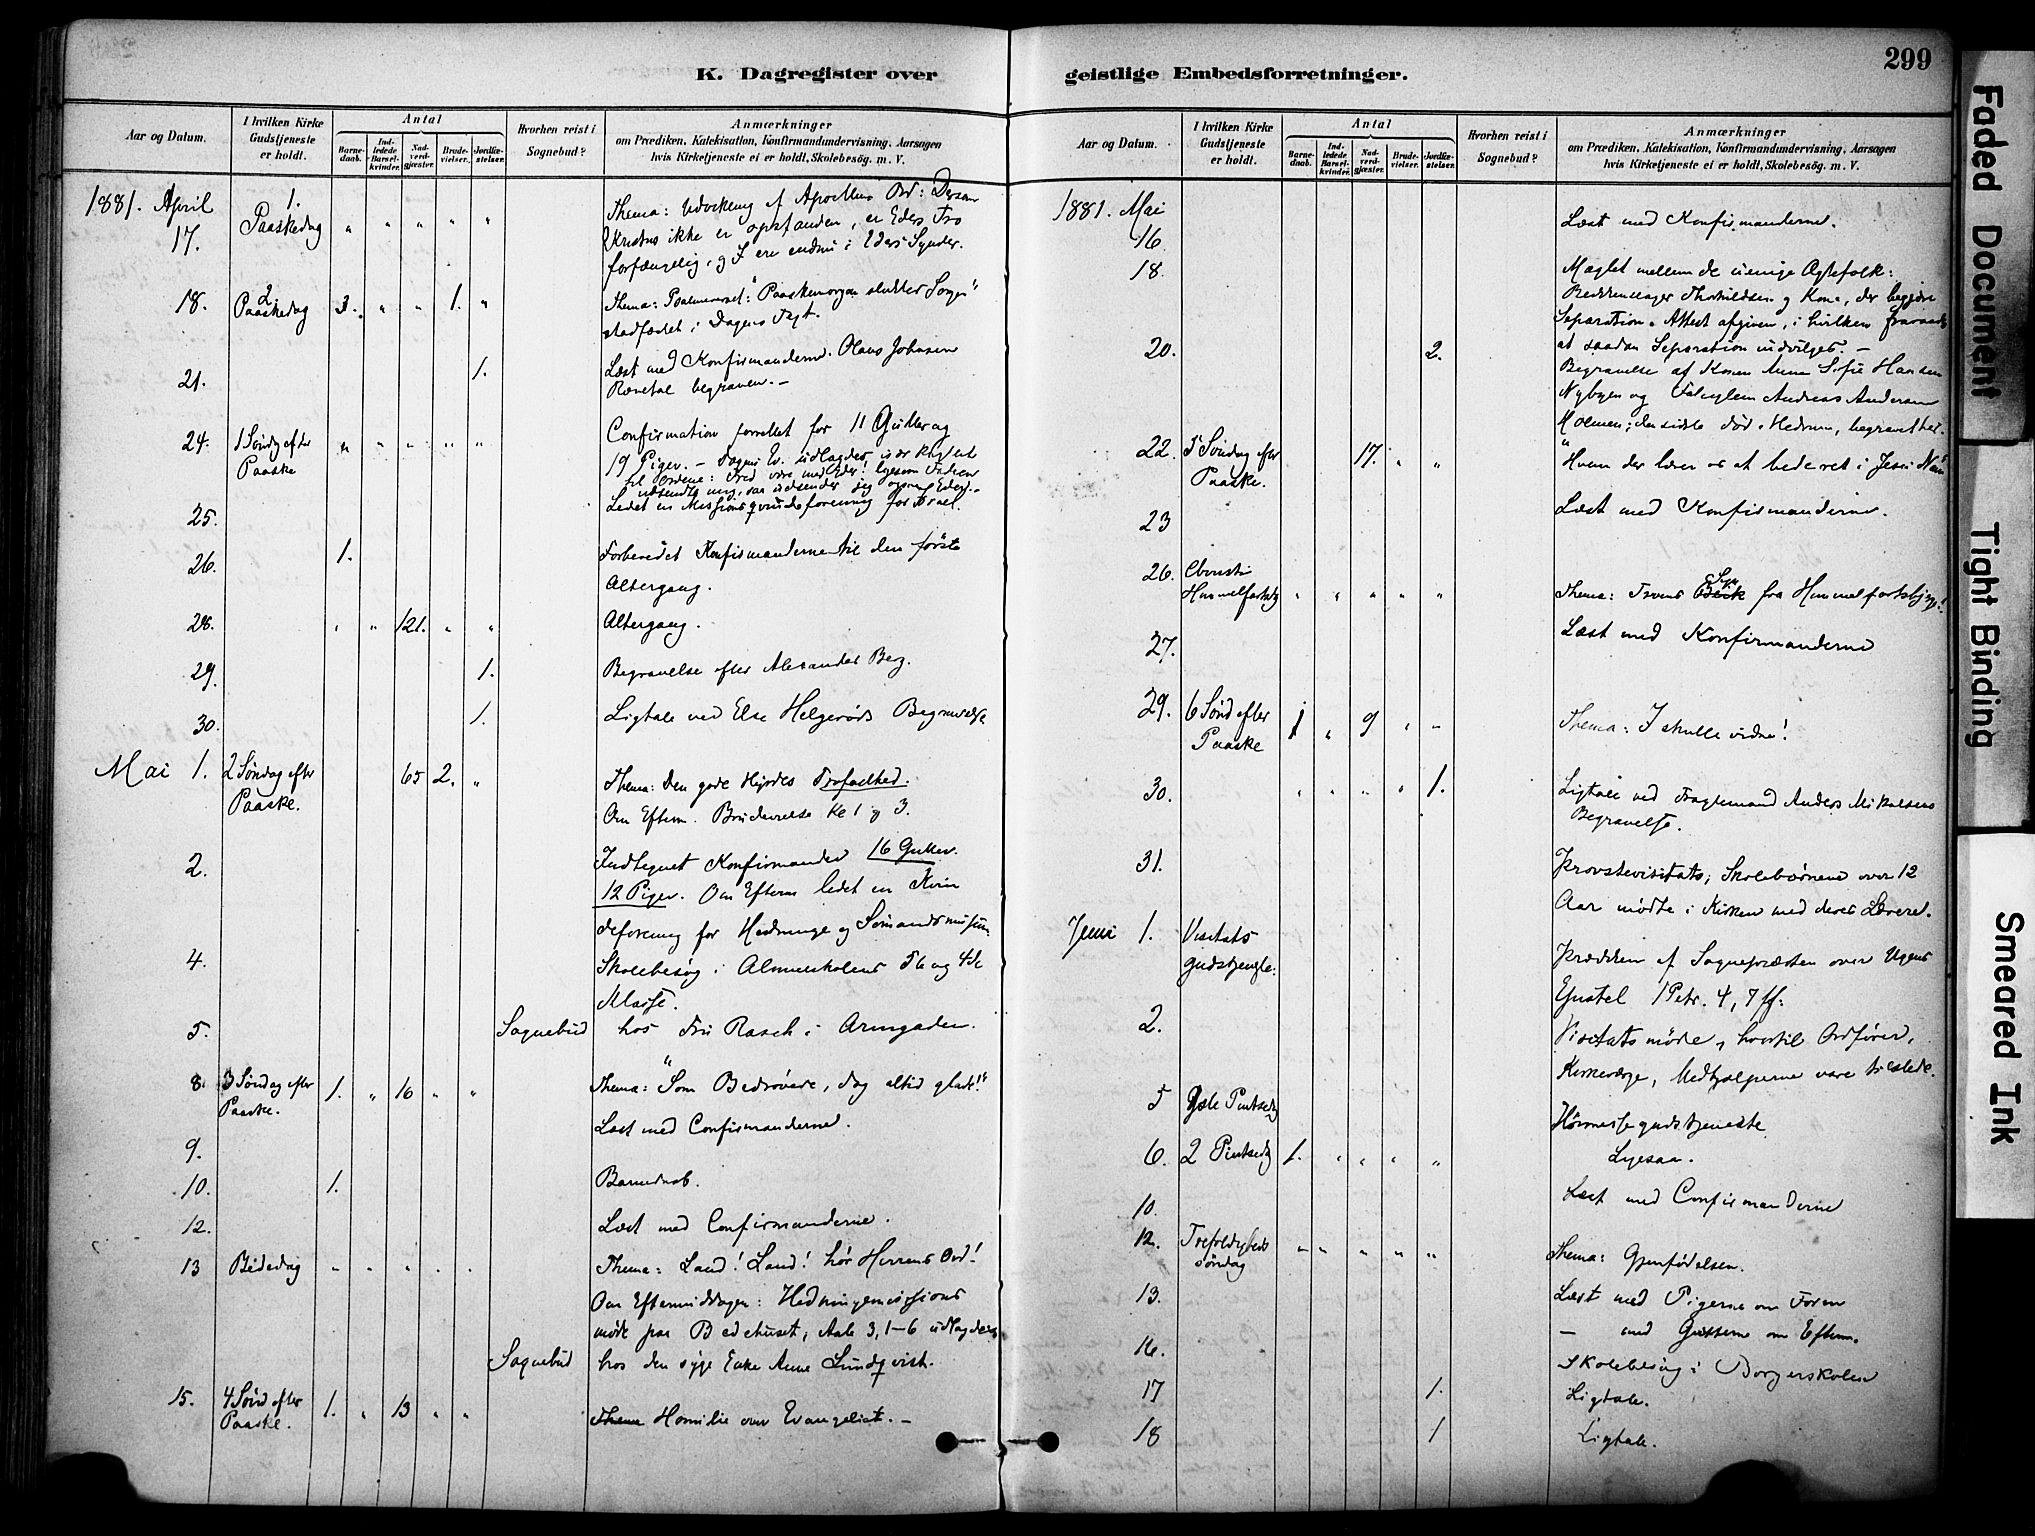 K. Dagregister over
Aar og Datum.
I hvilken Kirke Gudstjeneste er holdt.
Antal
Barnedaab.
Indledede Barselkvinder.
Nadverdgjæster.
Brudevielser.
Jordfæstelser.
Hvorhen reist i Sognebud?
Anmærkninger
om Prædiken, Katekisation, Konfirmandundervisning, Aarsagen
hvis Kirketjeneste ei er holdt, Skolebesøg. m. V.
1881. April 17. 1. Paaskedag " " " " " Thema: Udvikling af Apostlens Ord: Dersom
Kristus ikke er opstanden, er Eders Tro
forfængelig, og I ere endnu i Eders Synder.
18. 2 Paaskedag 3. " " 1. " Thema: Psalmeverset: "Paaskemorgen slukker Sorgen"
stadfæstet i Dagens Text.
21. 1. Læst med Konfirmanderne. Olaus Johnsen
begraven. –
24. 1 Søndg efter Paaske " " " " " Confirmation forrettet for 11 Gutter og
19 Piger. – Dagens Ev. udlagdes især
til Ordene: Fred være med Eder! ligesom Faderen
udsendte mig, saa udsender jeg ogsaa Eder. –
25. Ledet en Missionsqvindeforening for Israel.
26. 1. Forberedet Konfirmanderne til den første
Altergang.
28. " " 121. " " Altergang.
29. 1. Begravelse efter Alexander Berg.
30. 1. Ligtale ved Else Helgerøds Begravelse
Mai 1. 2 Søndag efter Paaske. 65 2. " Thema: Den gode Hyrdes Trofasthed.
Om Efterm. Brudevielse Kl 1 og 3.
2. Indtegnet Konfirmander 16 Gutter.
12 Piger. Om Efterm ledet en Kvin
deforening for Hedninge og Sømandsmission.
4. Skolebesøg i Almueskolens 5te og 4de
Klasse.
5. Sognebud hos Fru Rasch i Armgaden.
8. 3 Søndag efter Paaske. 1. " 16 " " Thema: "Som Bedrøvede, dog altid glade!"
9. Læst med Confirmanderne.
10. 1. Barnedaab.
12. Læst med Confirmanderne.
13 Bededag " " " " " Thema: Land! Land! hør Herrens Ord!
Om Eftermiddagen: Hedningemissions
møde paa Bedehuset, 3, 1–6 udlagdes
Sognebud hos den syge Enke Anne Lundqvist.
15. 4 Sønd efter Paaske. 1. " 13 " " Homilie over Evangeliet. –
299
geistlige Embedsforretninger.
Aar og Datum.
I hvilken Kirke Gudstjeneste er holdt.
Antal
Barnedaab.
Indledede Barselkvinder.
Nadverdgjæster.
Brudevielser.
Jordfæstelser.
Hvorhen reist i Sognebud?
Anmærkninger
om Prædiken, Katekisation, Konfirmandundervisning, Aarsagen
hvis Kirketjeneste ei er holdt, Skolebesøg. m. V.
1881. Mai 16. Læst med Konfirmanderne.
18. Mæglet mellem de uenige Ægtefolk:
Thorkildsen og Kone, der begjære
Separation. Attest afgiven, i hvilken fraraades
at saadan Separation indvilges. –
20. 2. Begravelse af Konen Anne Sofie Hansen
Nybyen og Andreas Andersen
Holmen; den sidste død i Hedrum, begravet her.
22. 5 Søndag efter Paaske. 17. " " "Hvem der lærer os at bede ret i Jesu Navn"
23 Læst med Konfirmanderne.
26. Christi Himmelfartsdg " " " " " Thema: Troens Syn fra Himmelfartsbjerget!
27. Læst med Konfirmanderne
29. 6 Sønd efter Paaske 1 " 9 " " Thema: I skulle vidne!
30. " " " " 1. Ligtale ved Anders Mikalsens
Begravelse.
31. Provstevisitats; Skolebørnene over 12
Aar mødte i Kirken med deres Lærere.
Juni 1. Visitats gudstjenste: Prædiken af Sognepræsten over Ugens
Epistel 1 Petr. 4, 7 ff:
2. Visitatsmøde, hvortil Ordfører,
Kirkeværge, Medhjælperne vare tilstede.
5 1ste Pintsedg Høimessegudstjeneste
6. 2 Pintsedg 1. " " " " Ligesaa.
10. Læst med Confirmanderne
12. Trefoldigheds søndag " " " " " Thema: Gjenfødelsen.
13. Læst med Pigerne om Form
— med Gutterne om Efterm.
16. Skolebesøg i Borgerskolen
17 1. Ligtale.
18 1 Ligtale.
Faded Document
Tight Binding
Smeared Ink